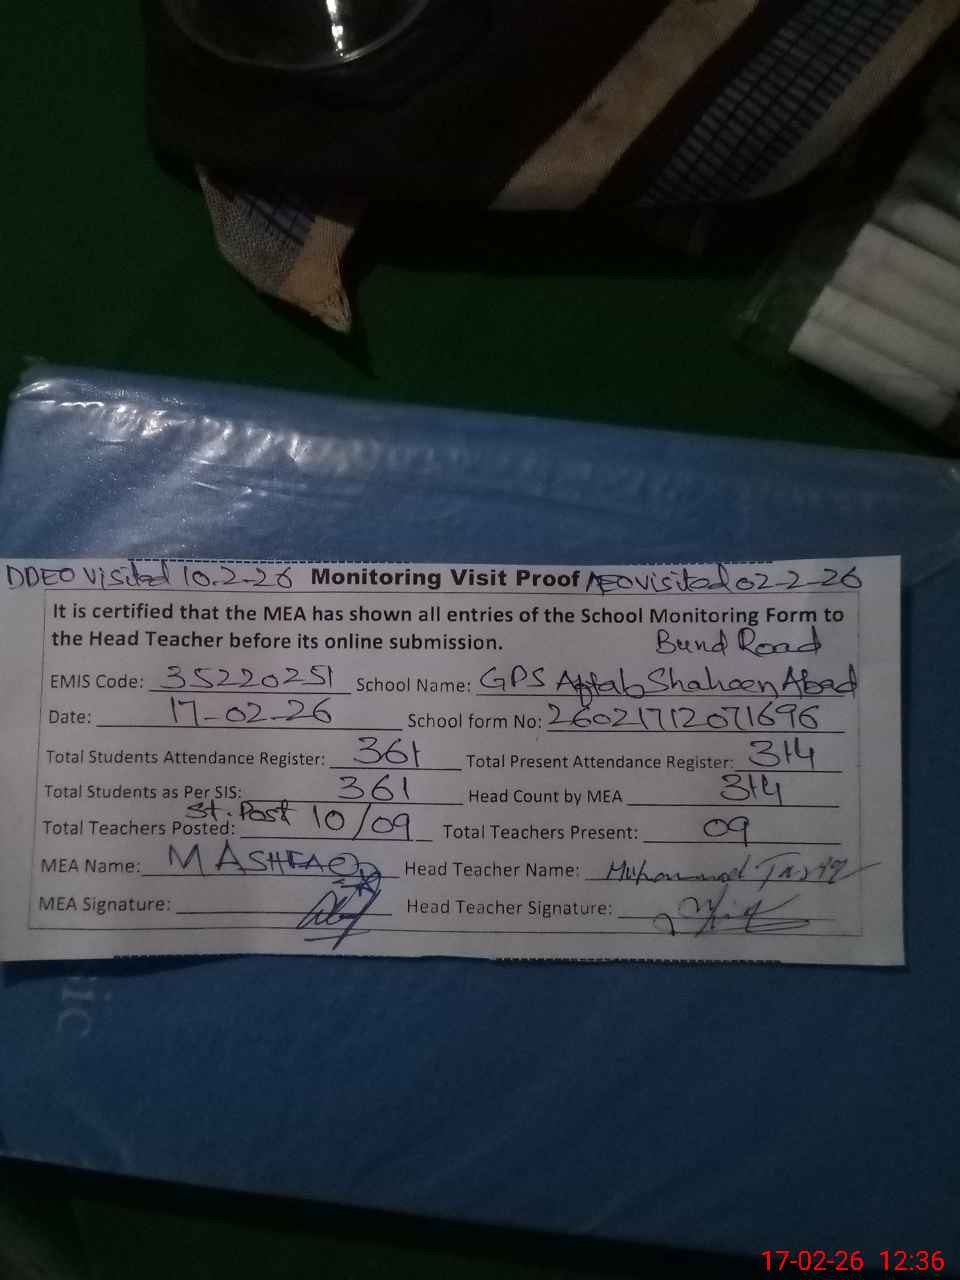 DDEO visited 10-2-26 Monitoring Visit Proof AEO visited 02-2-26
It is certified that the MEA has shown all entries of the School Monitoring Form to
the Head Teacher before its online submission.
Bund Road
EMIS Code: 35220251 School Name: GPS Aftab Shaheen Abad
Date: 17-02-26 School form No: 26021712071696
Total Students Attendance Register: 361 Total Present Attendance Register: 314
Total Students as Per SIS: 361 Head Count by MEA 314
Total Teachers Posted: St. Post 10/09 Total Teachers Present: 09
MEA Name: M ASHFAQ Head Teacher Name: Muhammad Tariq
MEA Signature: Head Teacher Signature:
ic
17-02-26 12:36